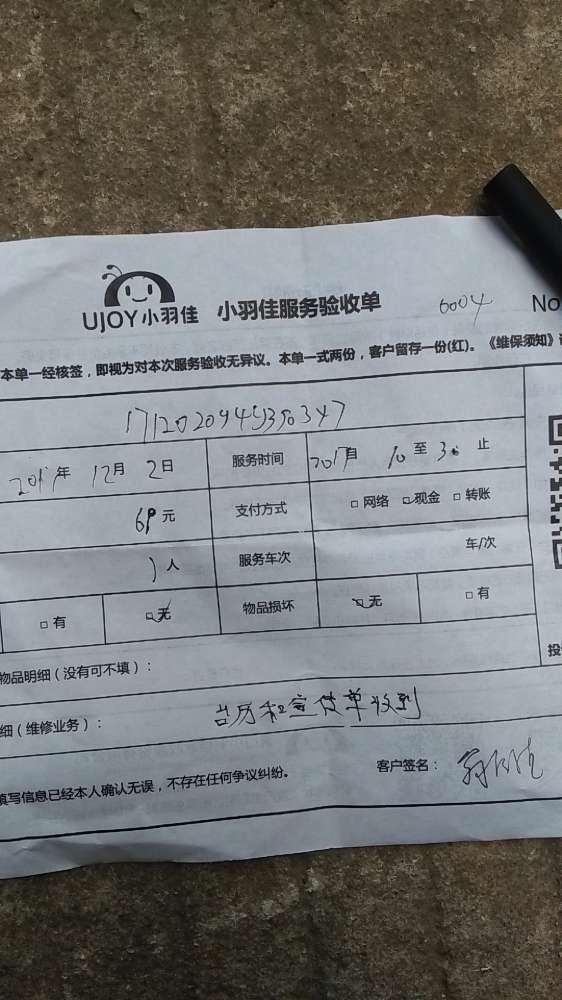 UJOY小羽佳 小羽佳服务验收单 6004 No
本单一经核签，即视为对本次服务验收无异议。本单一式两份，客户留存一份(红)。《维保须知》
2017年 12月 2日 服务时间 2017自 10 至 30 止
69元 支付方式 □网络 □现金 □转账
1人 服务车次 车/次
□有 □无 物品损坏 □无 □有
物品明细（没有可不填）：
细（维修业务）： 台历和宣传单收到
填写信息已经本人确认无误，不存在任何争议纠纷。 客户签名：